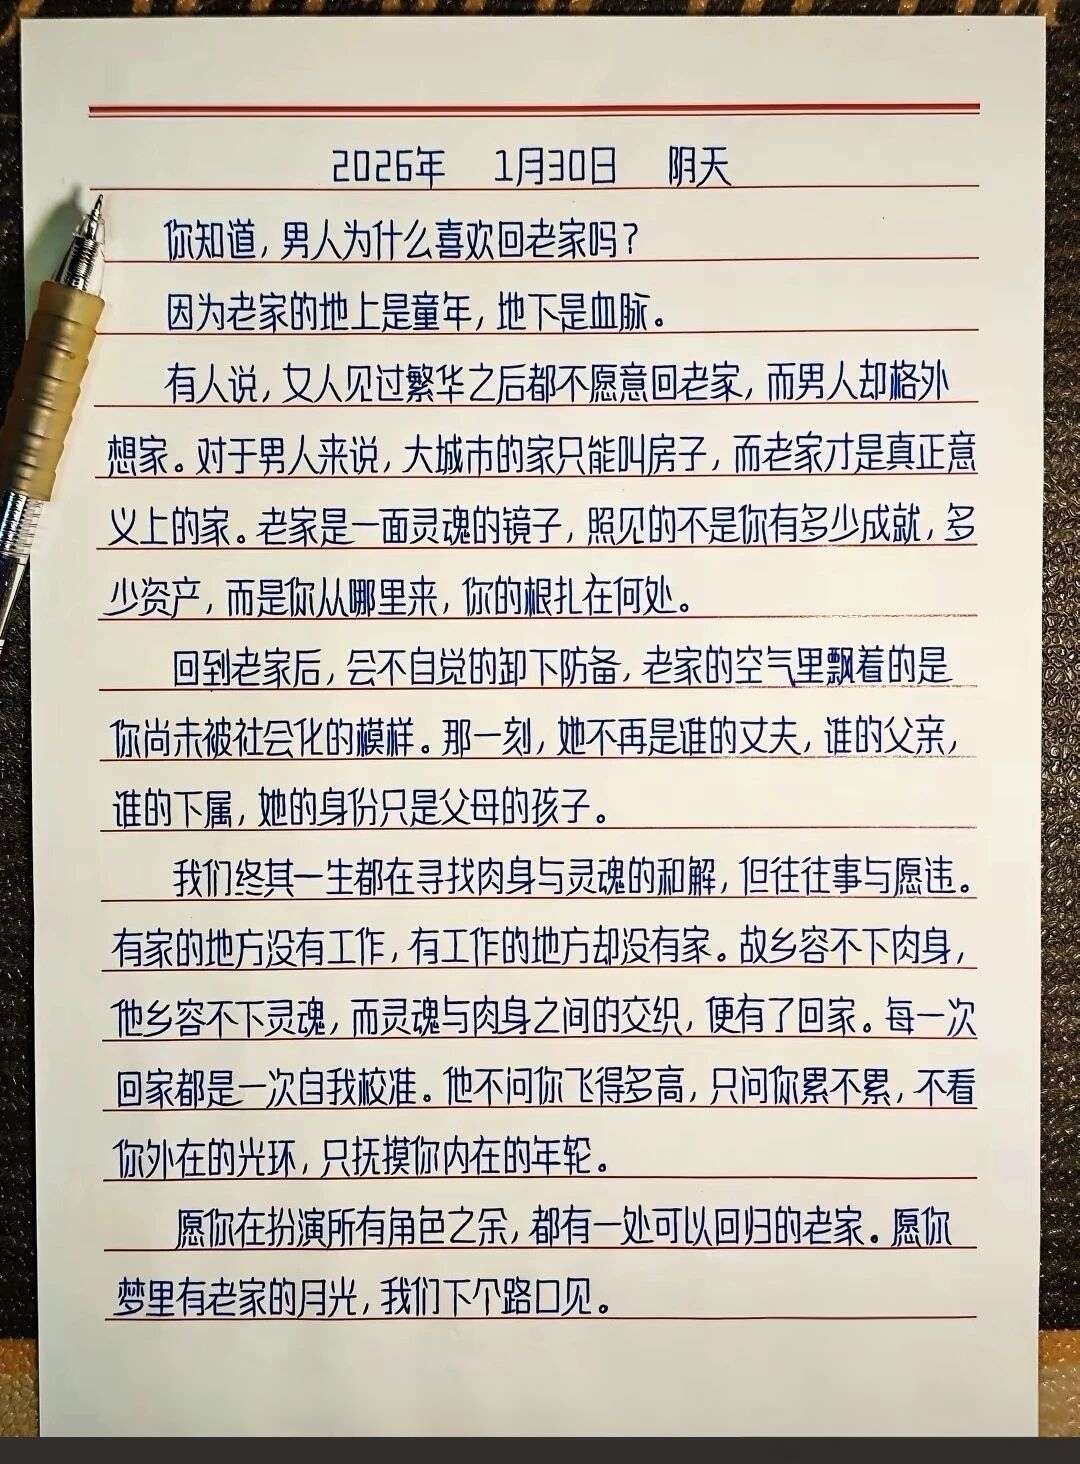 2026年 1月30日 阴天
你知道，男人为什么喜欢回老家吗？
因为老家的地上是童年，地下是血脉。
有人说，女人见过繁华之后都不愿意回老家，而男人却格外
想家。对于男人来说，大城市的家只能叫房子，而老家才是真正意
义上的家。老家是一面灵魂的镜子，照见的不是你有多少成就，多
少资产，而是你从哪里来，你的根扎在何处。
回到老家后，会不自觉的卸下防备，老家的空气里飘着的是
你尚未被社会化的模样。那一刻，她不再是谁的丈夫，谁的父亲，
谁的下属，她的身份只是父母的孩子。
我们终其一生都在寻找肉身与灵魂的和解，但往往事与愿违。
有家的地方没有工作，有工作的地方却没有家。故乡容不下肉身，
他乡容不下灵魂，而灵魂与肉身之间的交织，便有了回家。每一次
回家都是一次自我校准。他不问你飞得多高，只问你累不累，不看
你外在的光环，只抚摸你内在的年轮。
愿你在扮演所有角色之余，都有一处可以回归的老家。愿你
梦里有老家的月光，我们下个路口见。